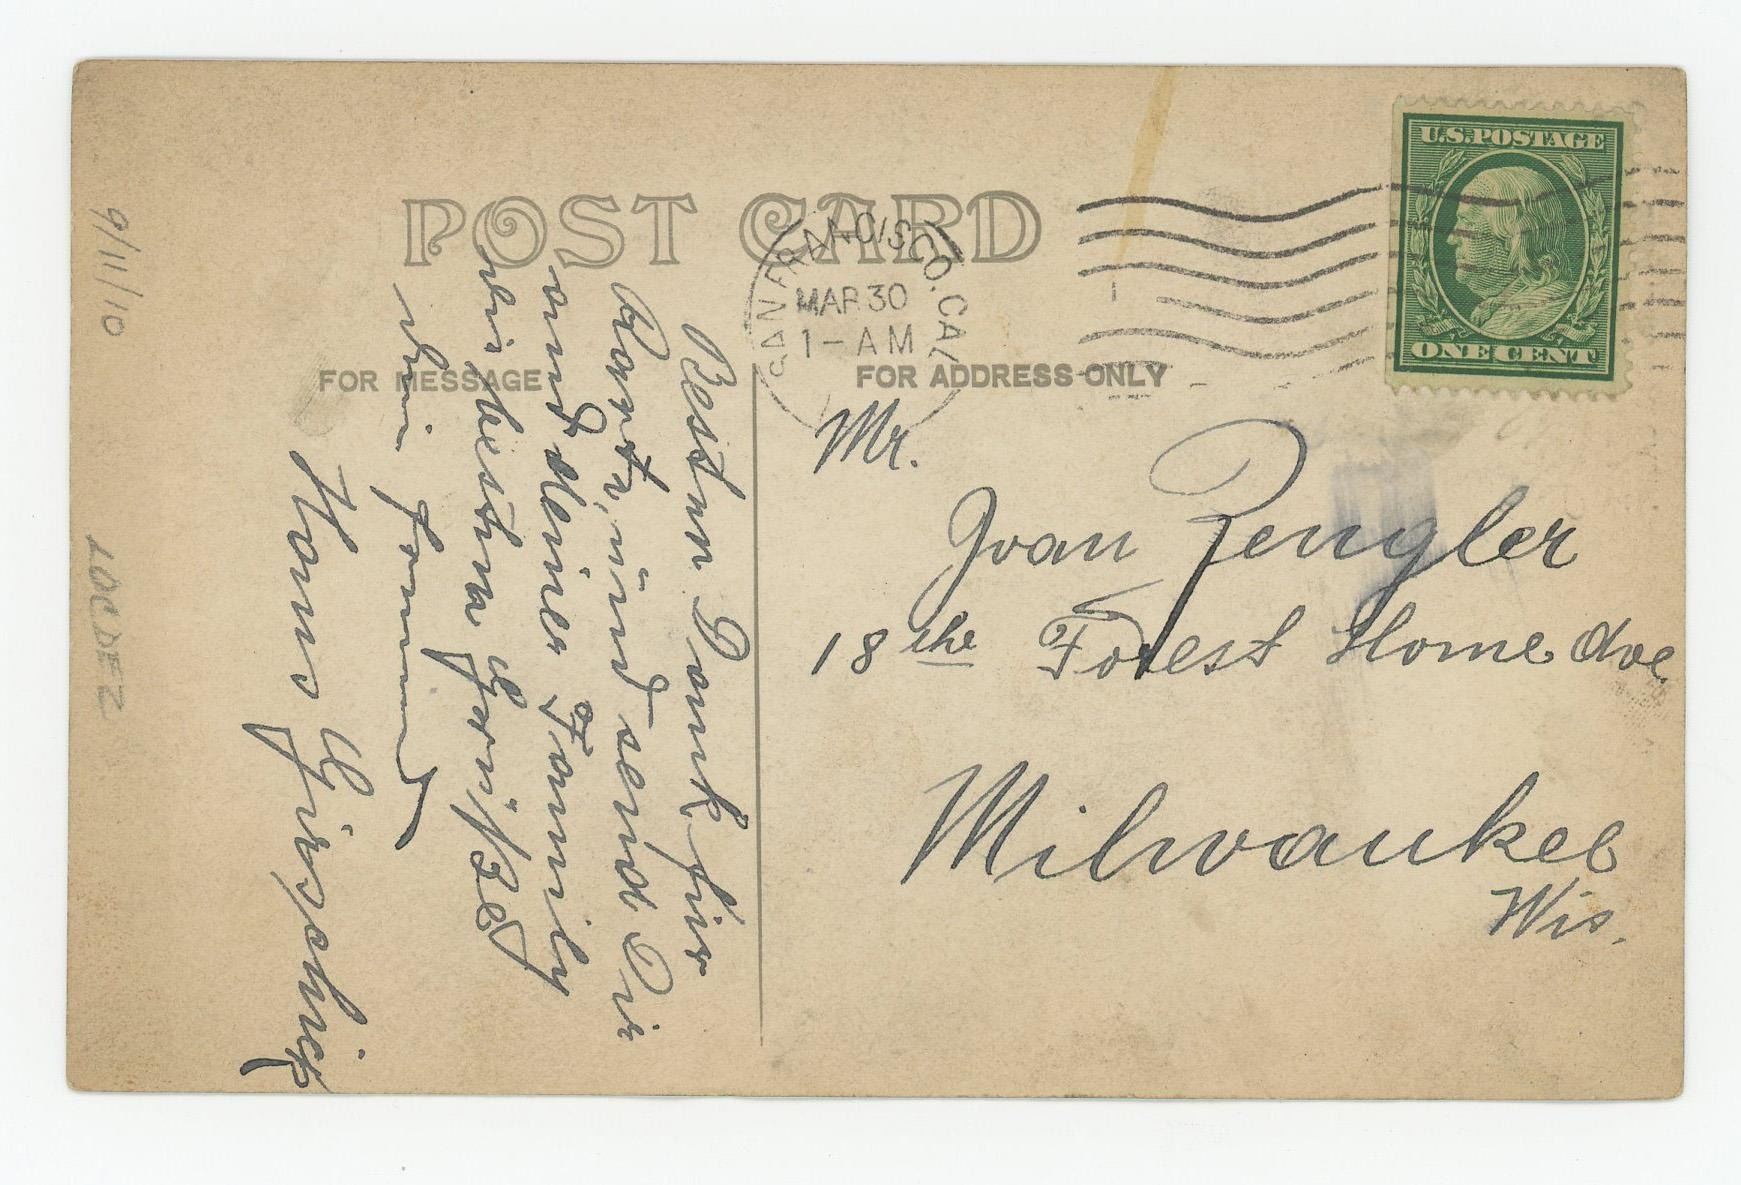 POST CARD
FOR MESSAGE
FOR ADDRESS ONLY
SAN FRANCISCO. CAL
MAR 30
1-AM
U.S. POSTAGE
ONE CENT
Mr.
Joan Zengler
18 the Forest Home Ave
Milwaukee
Wis.
Besten Dank für
Karte, und send Dir
und Deiner Family
die besten Grüße
Dein Freund
Hans
9/11/10